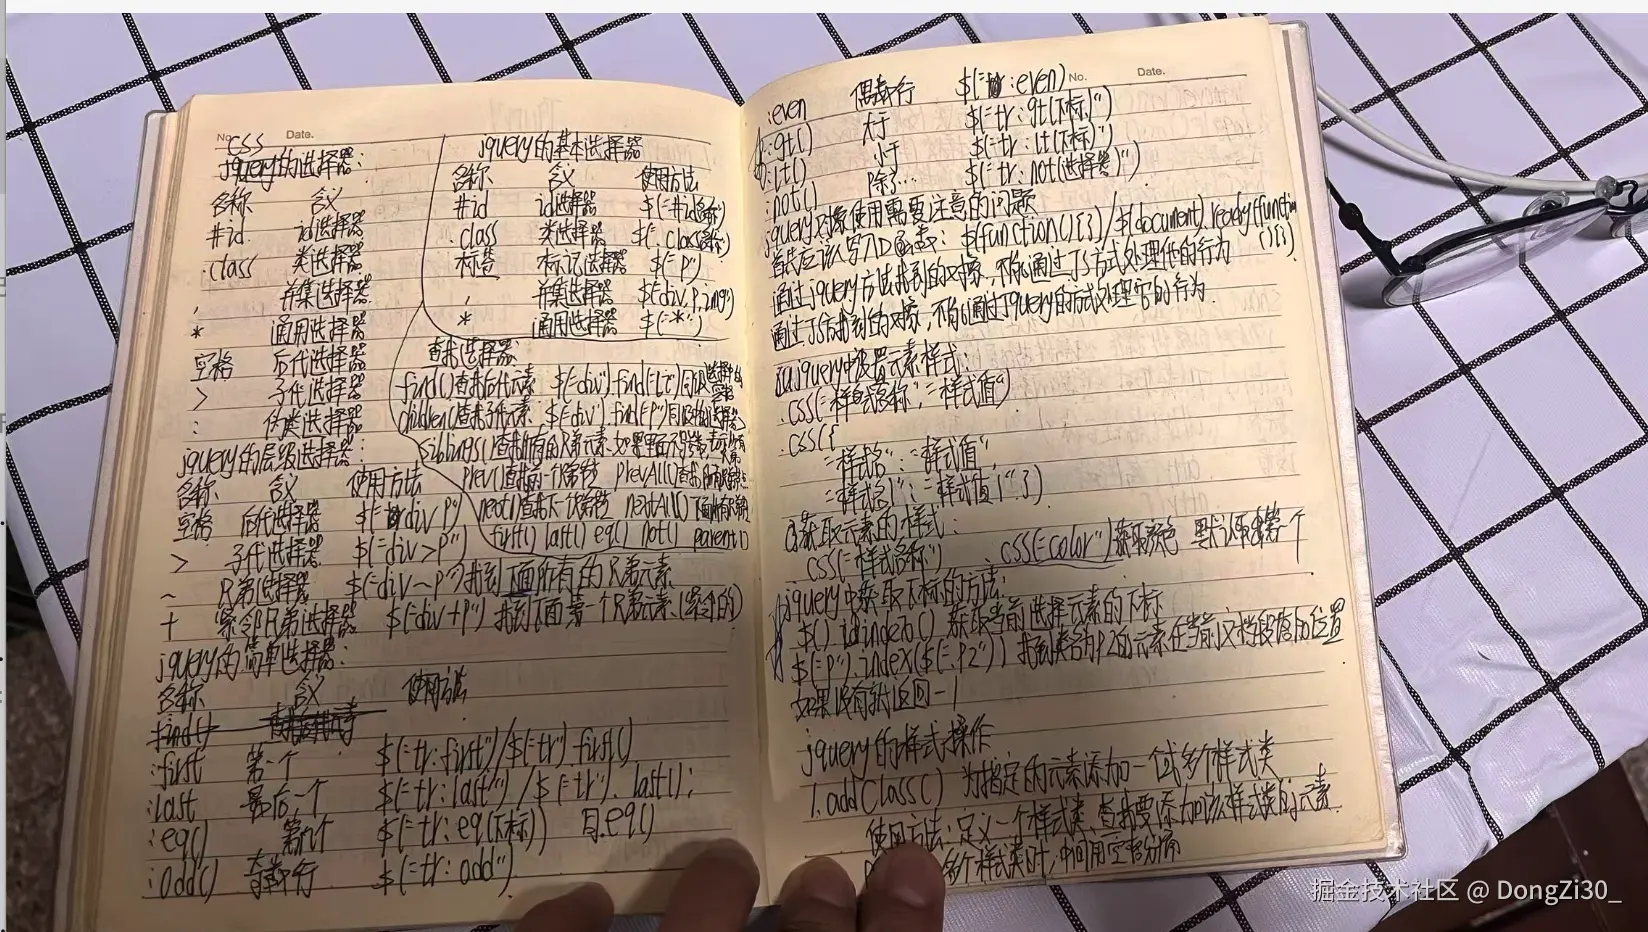 No. Date.
CSS
jquery的选择器:
名称 含义
#id id选择器
.class 类选择器
, 并集选择器
* 通用选择器
空格 后代选择器
> 子代选择器
: 伪类选择器
jquery的层级选择器:
名称 含义 使用方法
空格 后代选择器 $("div p")
> 子代选择器 $("div>p")
~ 兄弟选择器 $("div~p")找到下面所有的兄弟元素
+ 紧邻兄弟选择器 $("div+p") 找到下面第一个兄弟元素(紧邻的)
jquery的简单选择器:
名称 含义 使用方法
:first 第一个 $("tr:first")/$("tr").first()
:last 最后一个 $("tr:last")/$("tr").last();
:eq() 第几个 $("tr:eq(下标)) .eq()
:odd() 奇数行 $("tr:odd")
jquery的基本选择器
名称 含义 使用方法
#id id选择器 $("#id名称")
.class 类选择器 $(".class名称")
标签 标记选择器 $("p")
, 并集选择器 $("div,p,img")
* 通用选择器 $("*")
查找选择器:
find()查找后代元素 $("div").find("li")
children()查找子代元素 $("div").find("p")
siblings()查找所有的兄弟元素
prev()查找前一个 prevAll()
next()查找下一个 nextAll()
first() last() eq() not() parent()
No. Date.
:even 偶数行 $("tr:even)
:gt() 大于 $("tr:gt(下标)")
:lt() 小于 $("tr:lt(下标)")
:not() 除了... $("tr:not(选择器)")
jquery对象使用需要注意的问题
首先应该写入口函数: $(function(){})/$(document).ready(function
(){})
通过jquery方法找到的对象,不能通过JS方式处理他的行为
通过JS找到的对象,不能通过Jquery的方式处理它的行为.
jquery中设置元素样式:
.css("样式名称","样式值")
.css({
"样式名":"样式值",
"样式名1":"样式值1"})
获取元素的样式:
css("样式名称") .css("color")获取颜色 默认取第一个
jquery中获取下标的方法:
$().index() 获取当前选择元素的下标
$("p").index($(".p2")) 找到类名为p2的元素在当前文档段落的位置
如果没有就返回-1
jquery的样式操作
1.addClass() 为指定的元素添加一个或多个样式类
使用方法:定义一个样式类,查找要添加该样式类的元素
多个样式类时,中间用空格分隔
掘金技术社区 @ DongZi30_